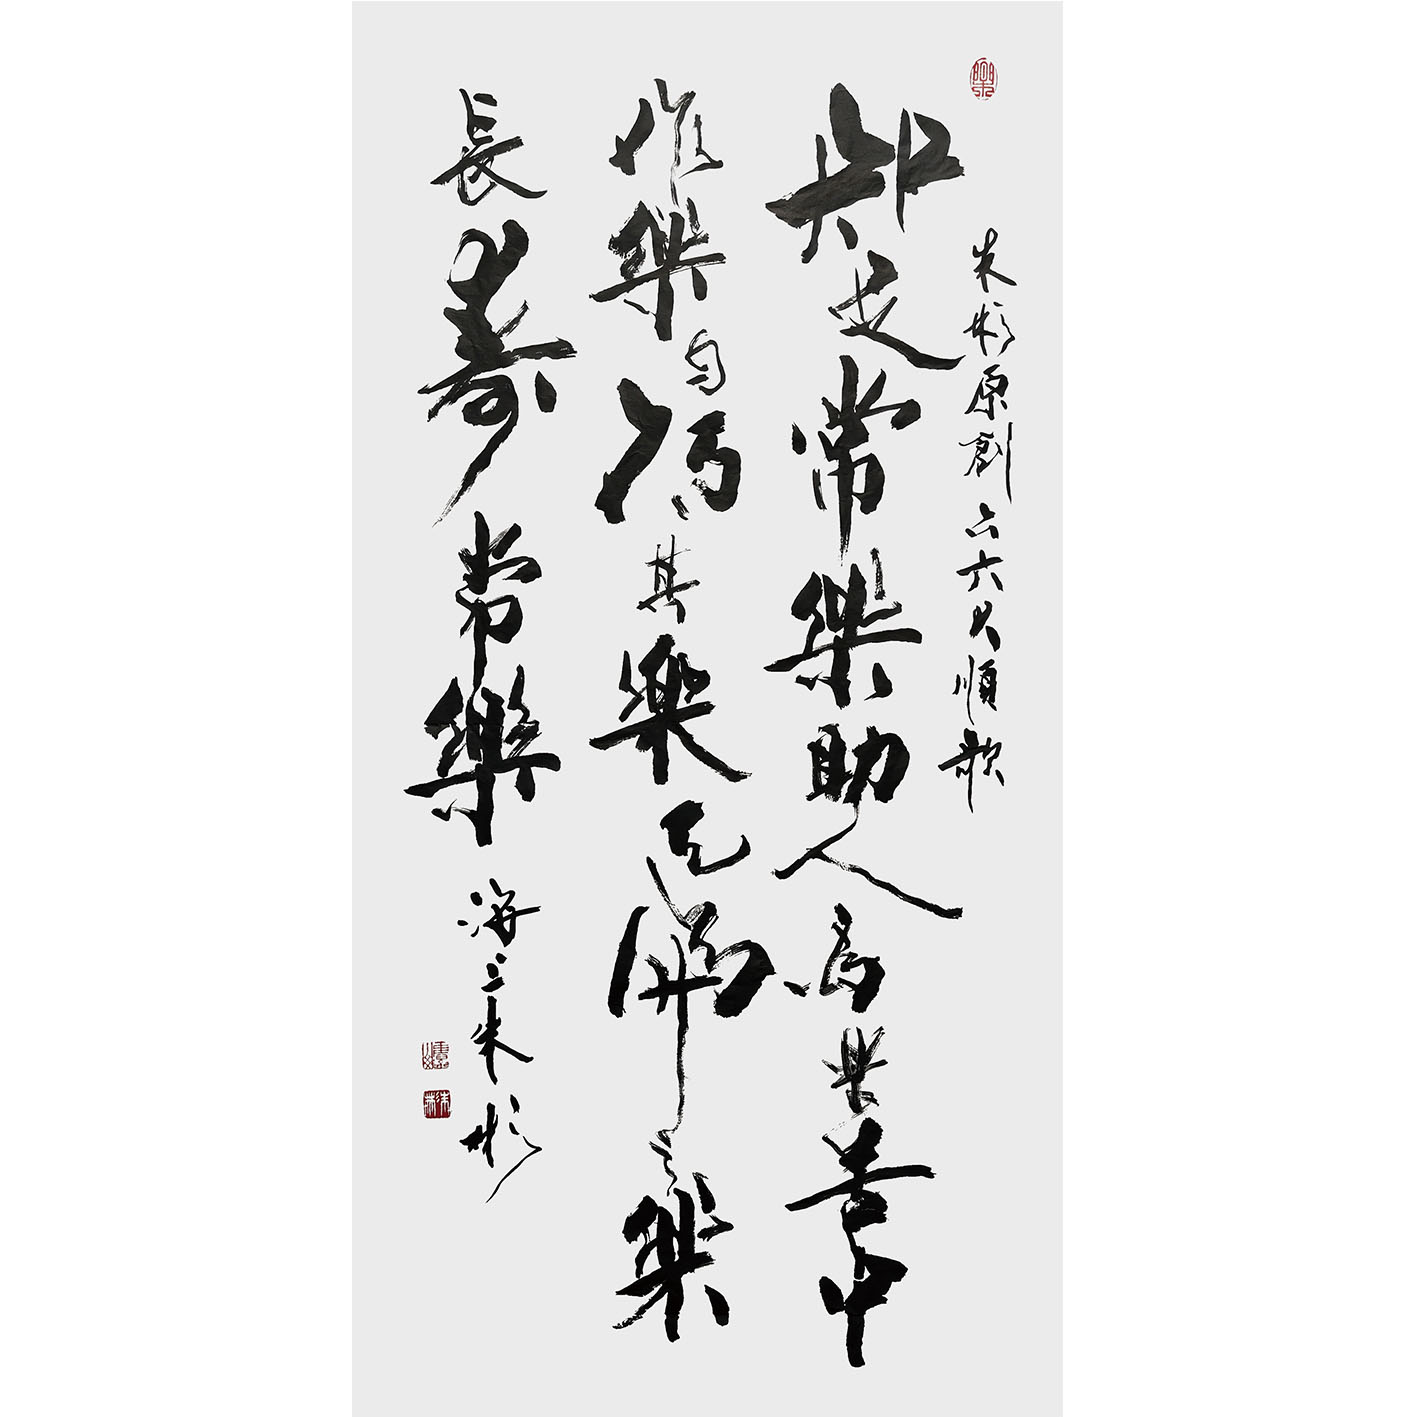 朱彬原創六六大順歌
知足常樂助人為樂苦中
作樂自得其樂天倫之樂
長壽常樂
海上朱彬